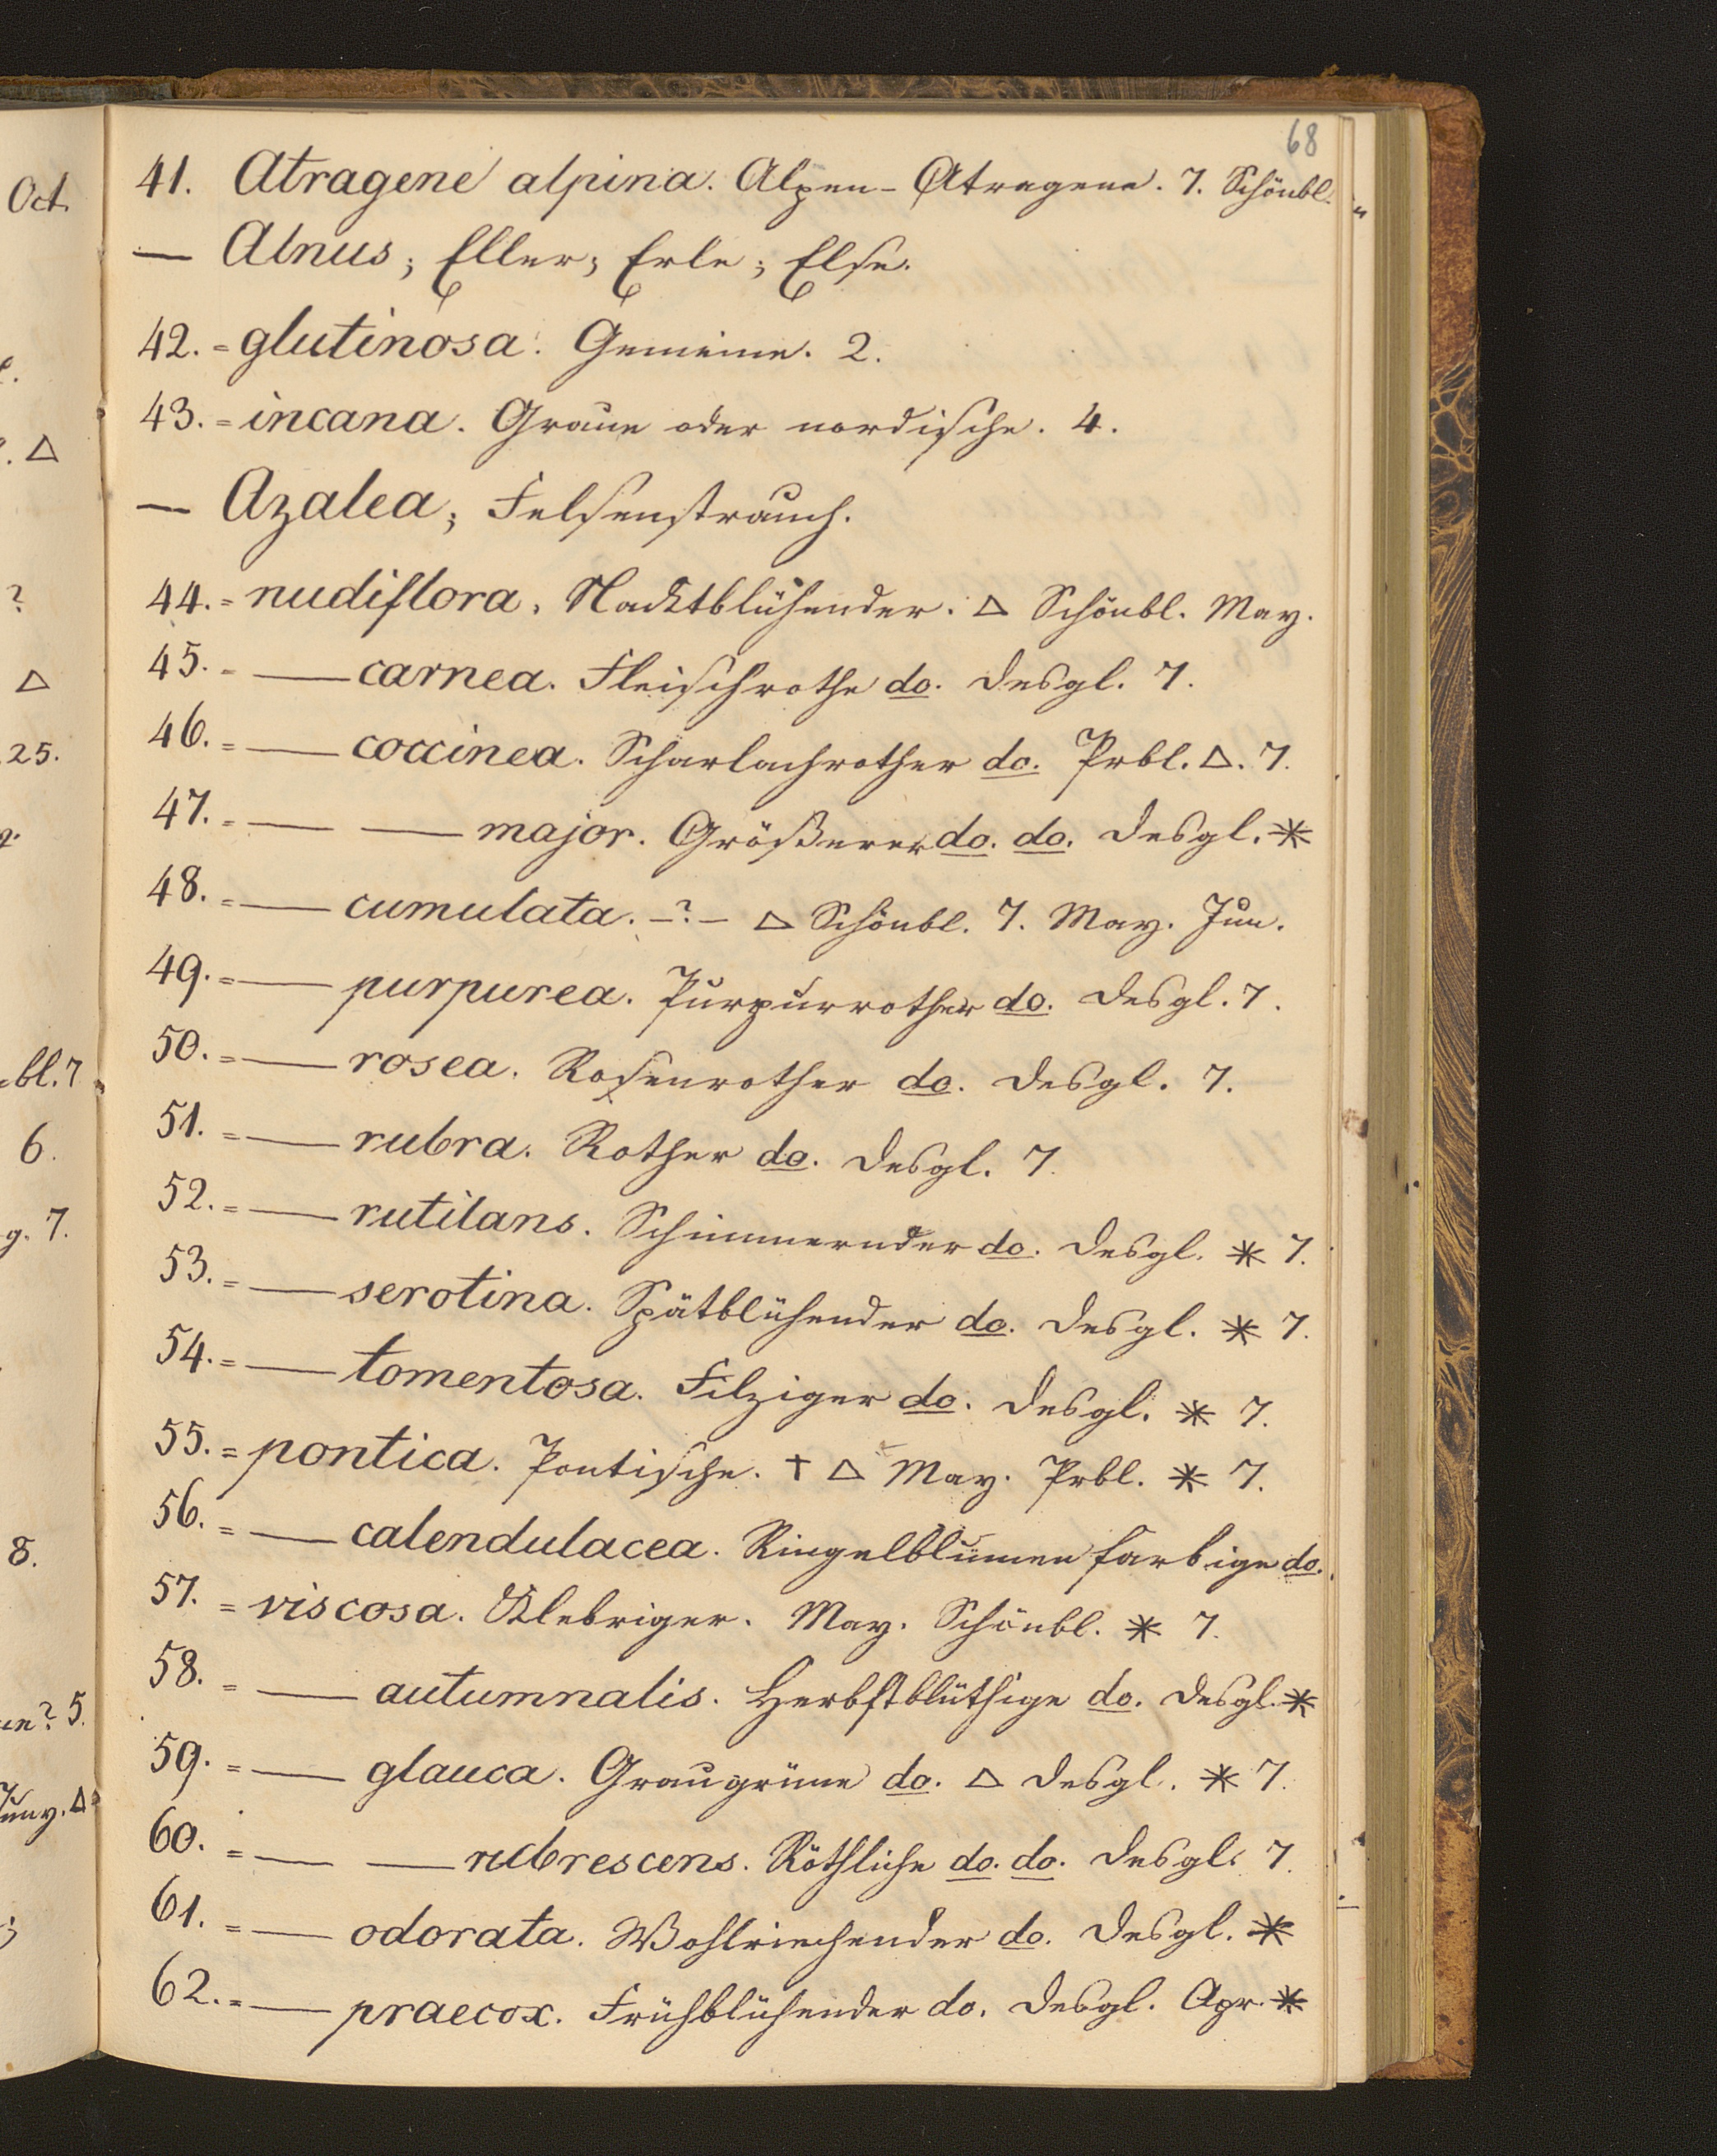 68
41. Atragene alpina. Alpen-Atragene. 7. Schönbl.
— Alnus; Eller; Erle; Else.
42. = glutinosa. Gemeine. 2.
43. = incana. Graue oder nordische. 4.
— Azalea; Felsenstrauch.
44. = nudiflora. Nacktblühender. △ Schönbl. May.
45. = — carnea. Fleischrothe do. desgl. 7.
46. = — coccinea. Scharlachrother do. Prbl. △. 7.
47. = — — major. Größerer do. do. desgl. *
48. = — cumulata. -?- △ Schönbl. 7. May. Jun.
49. = — purpurea. Purpurrother do. desgl. 7.
50. = — rosea. Rosenrother do. desgl. 7.
51. = — rubra. Rother do. desgl. 7.
52. = — rutilans. Schimmernder do. desgl. * 7.
53. = — serotina. Spätblühender do. desgl. * 7.
54. = — tomentosa. Filziger do. desgl. * 7.
55. = pontica. Pontische. † △ May. Prbl. * 7.
56. = — calendulacea. Ringelblumenfarbige do.
57. = viscosa. Klebriger. May. Schönbl. * 7.
58. = — autumnalis. Herbstblüthige do. desgl. *
59. = — glauca. Graugrüne do. △ desgl. * 7.
60. = — — rubrescens. Röthliche do. do. desgl. 7.
61. = — odorata. Wohlriechender do. desgl. *
62. = — praecox. Frühblühender do. desgl. Apr. *
Oct.
△
?
△
25.
bl. 7
6.
g. 7.
8.
? 5.
△